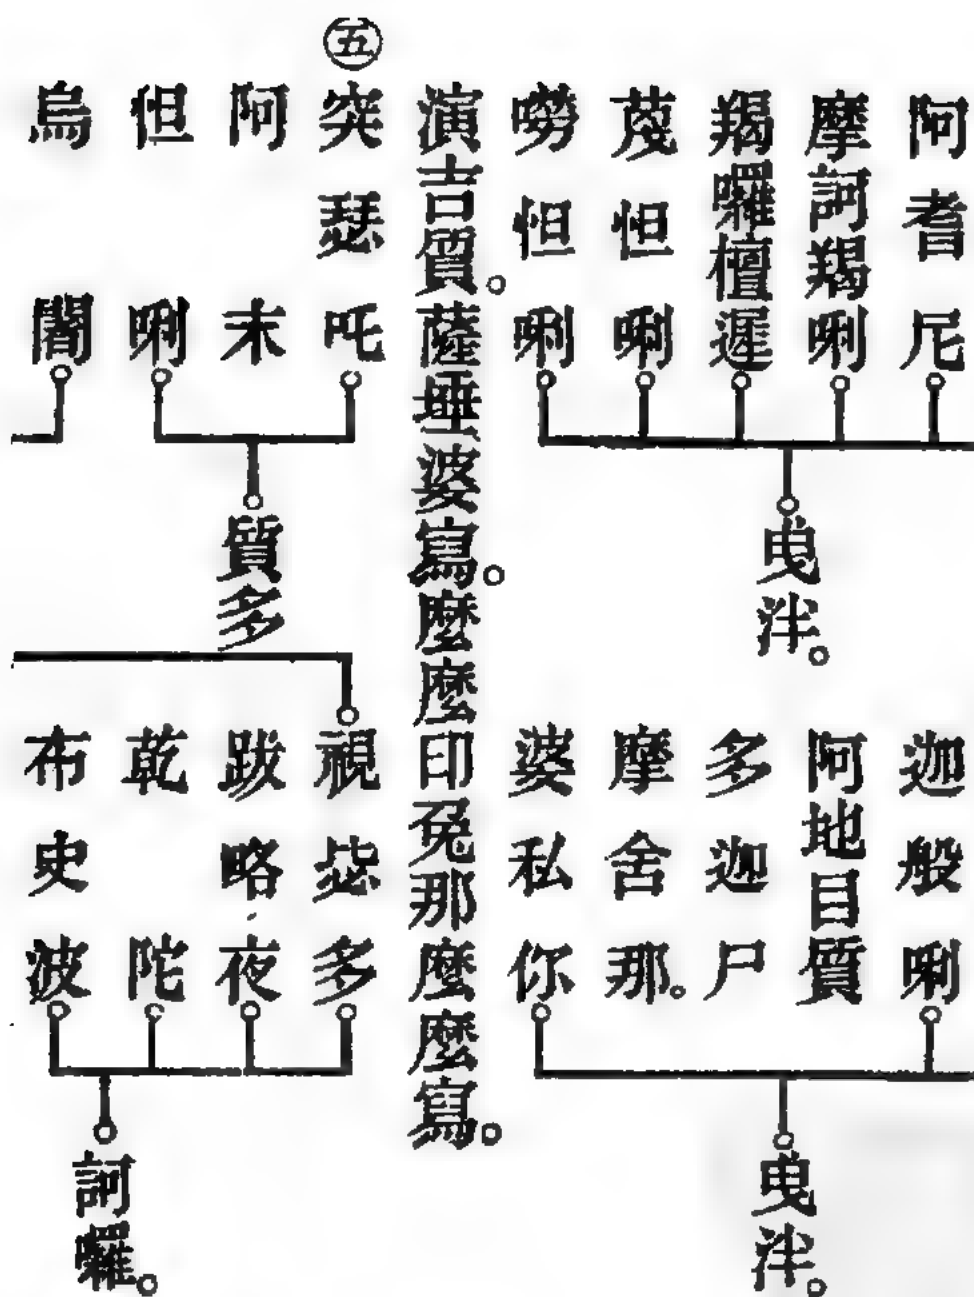 阿耆尼
摩訶羯唎
羯囉檀遲
蔑怛唎
嘮怛唎
曳泮。
迦般唎
阿地目質
多迦尸
摩舍那。
婆私你
曳泮。
演吉質。薩埵婆寫。麼麼印兔那麼麼寫。
㊄
突瑟吒
阿末
但唎
質多
烏闍
視毖多
跋略夜
乾陀
布史波
訶囉。